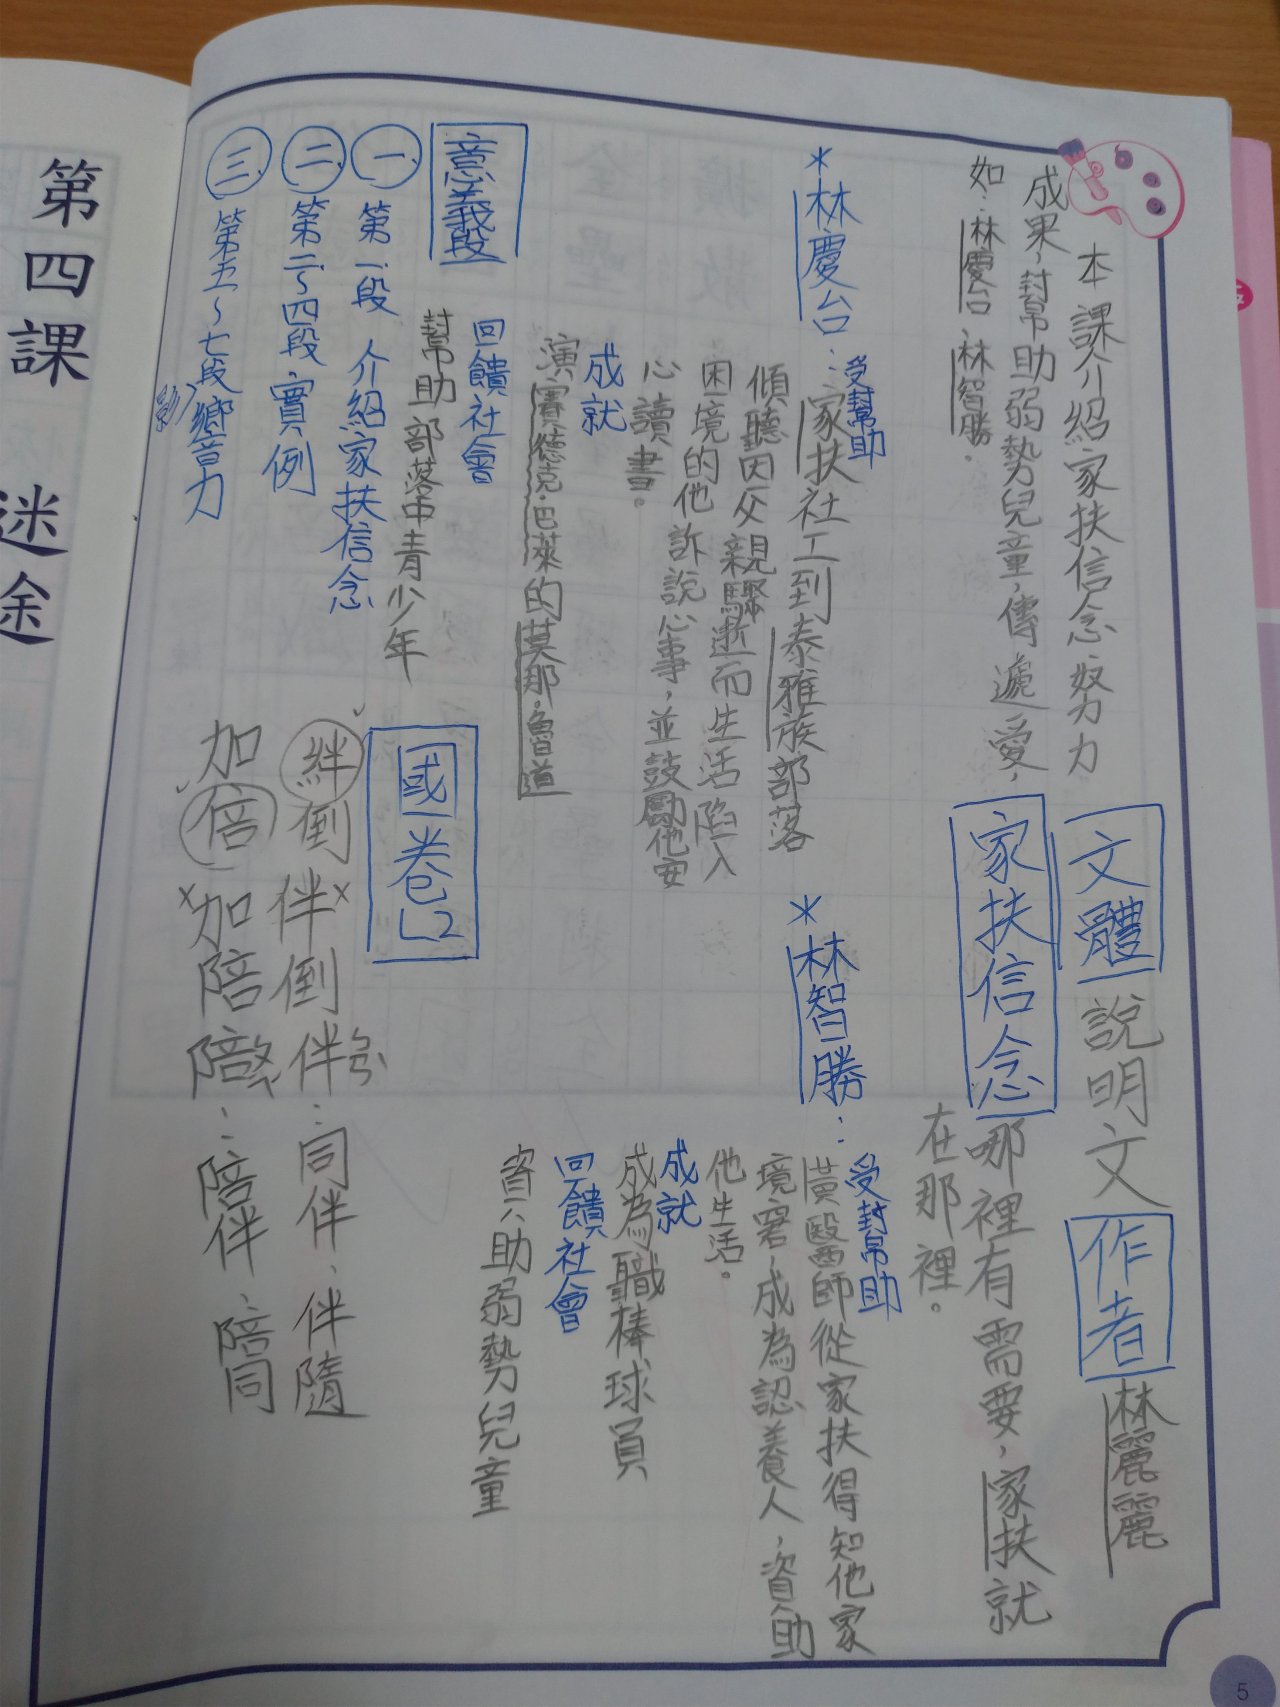 本課介紹家扶信念、努力
成果，幫助弱勢兒童，傳遞愛，
如：林慶台、林智勝。
文體 說明文 作者 林麗麗
家扶信念 哪裡有需要，家扶就
在那裡。
＊林慶台：受幫助
家扶社工到泰雅族部落
傾聽因父親驟逝而生活陷入
困境的他訴說心事，並鼓勵他安
心讀書。
成就
演賽德克·巴萊的莫那·魯道
回饋社會
幫助部落中青少年
＊林智勝：受幫助
黃醫師從家扶得知他家
境窘，成為認養人，資助
他生活。
成就
成為職棒球員
回饋社會
資助弱勢兒童
意義段
一、第一段 介紹家扶信念
二、第二~四段 實例
三、第五~七段 影響力
國卷L2
絆倒 伴倒 伴ㄅㄢˋ：同伴、伴隨
加倍 加陪 陪ㄆㄟˊ：陪伴、陪同
第四課 迷途
5